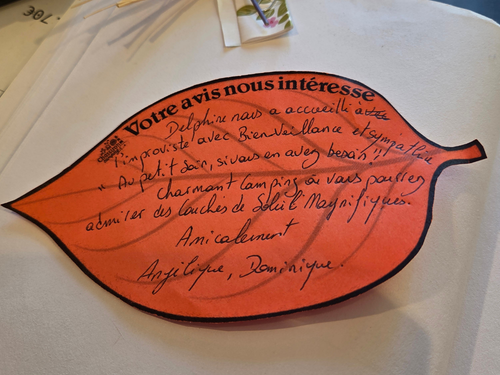 Votre avis nous intéresse
Delphine nous a accueilli à
l'improviste avec Bienveillance et sympathie
"Au petit soin, si vous en avez besoin"!
charmant Camping où vous pourrez
admirer des Couchés de Soleil Magnifiques.
Amicalement
Angélique, Dominique.